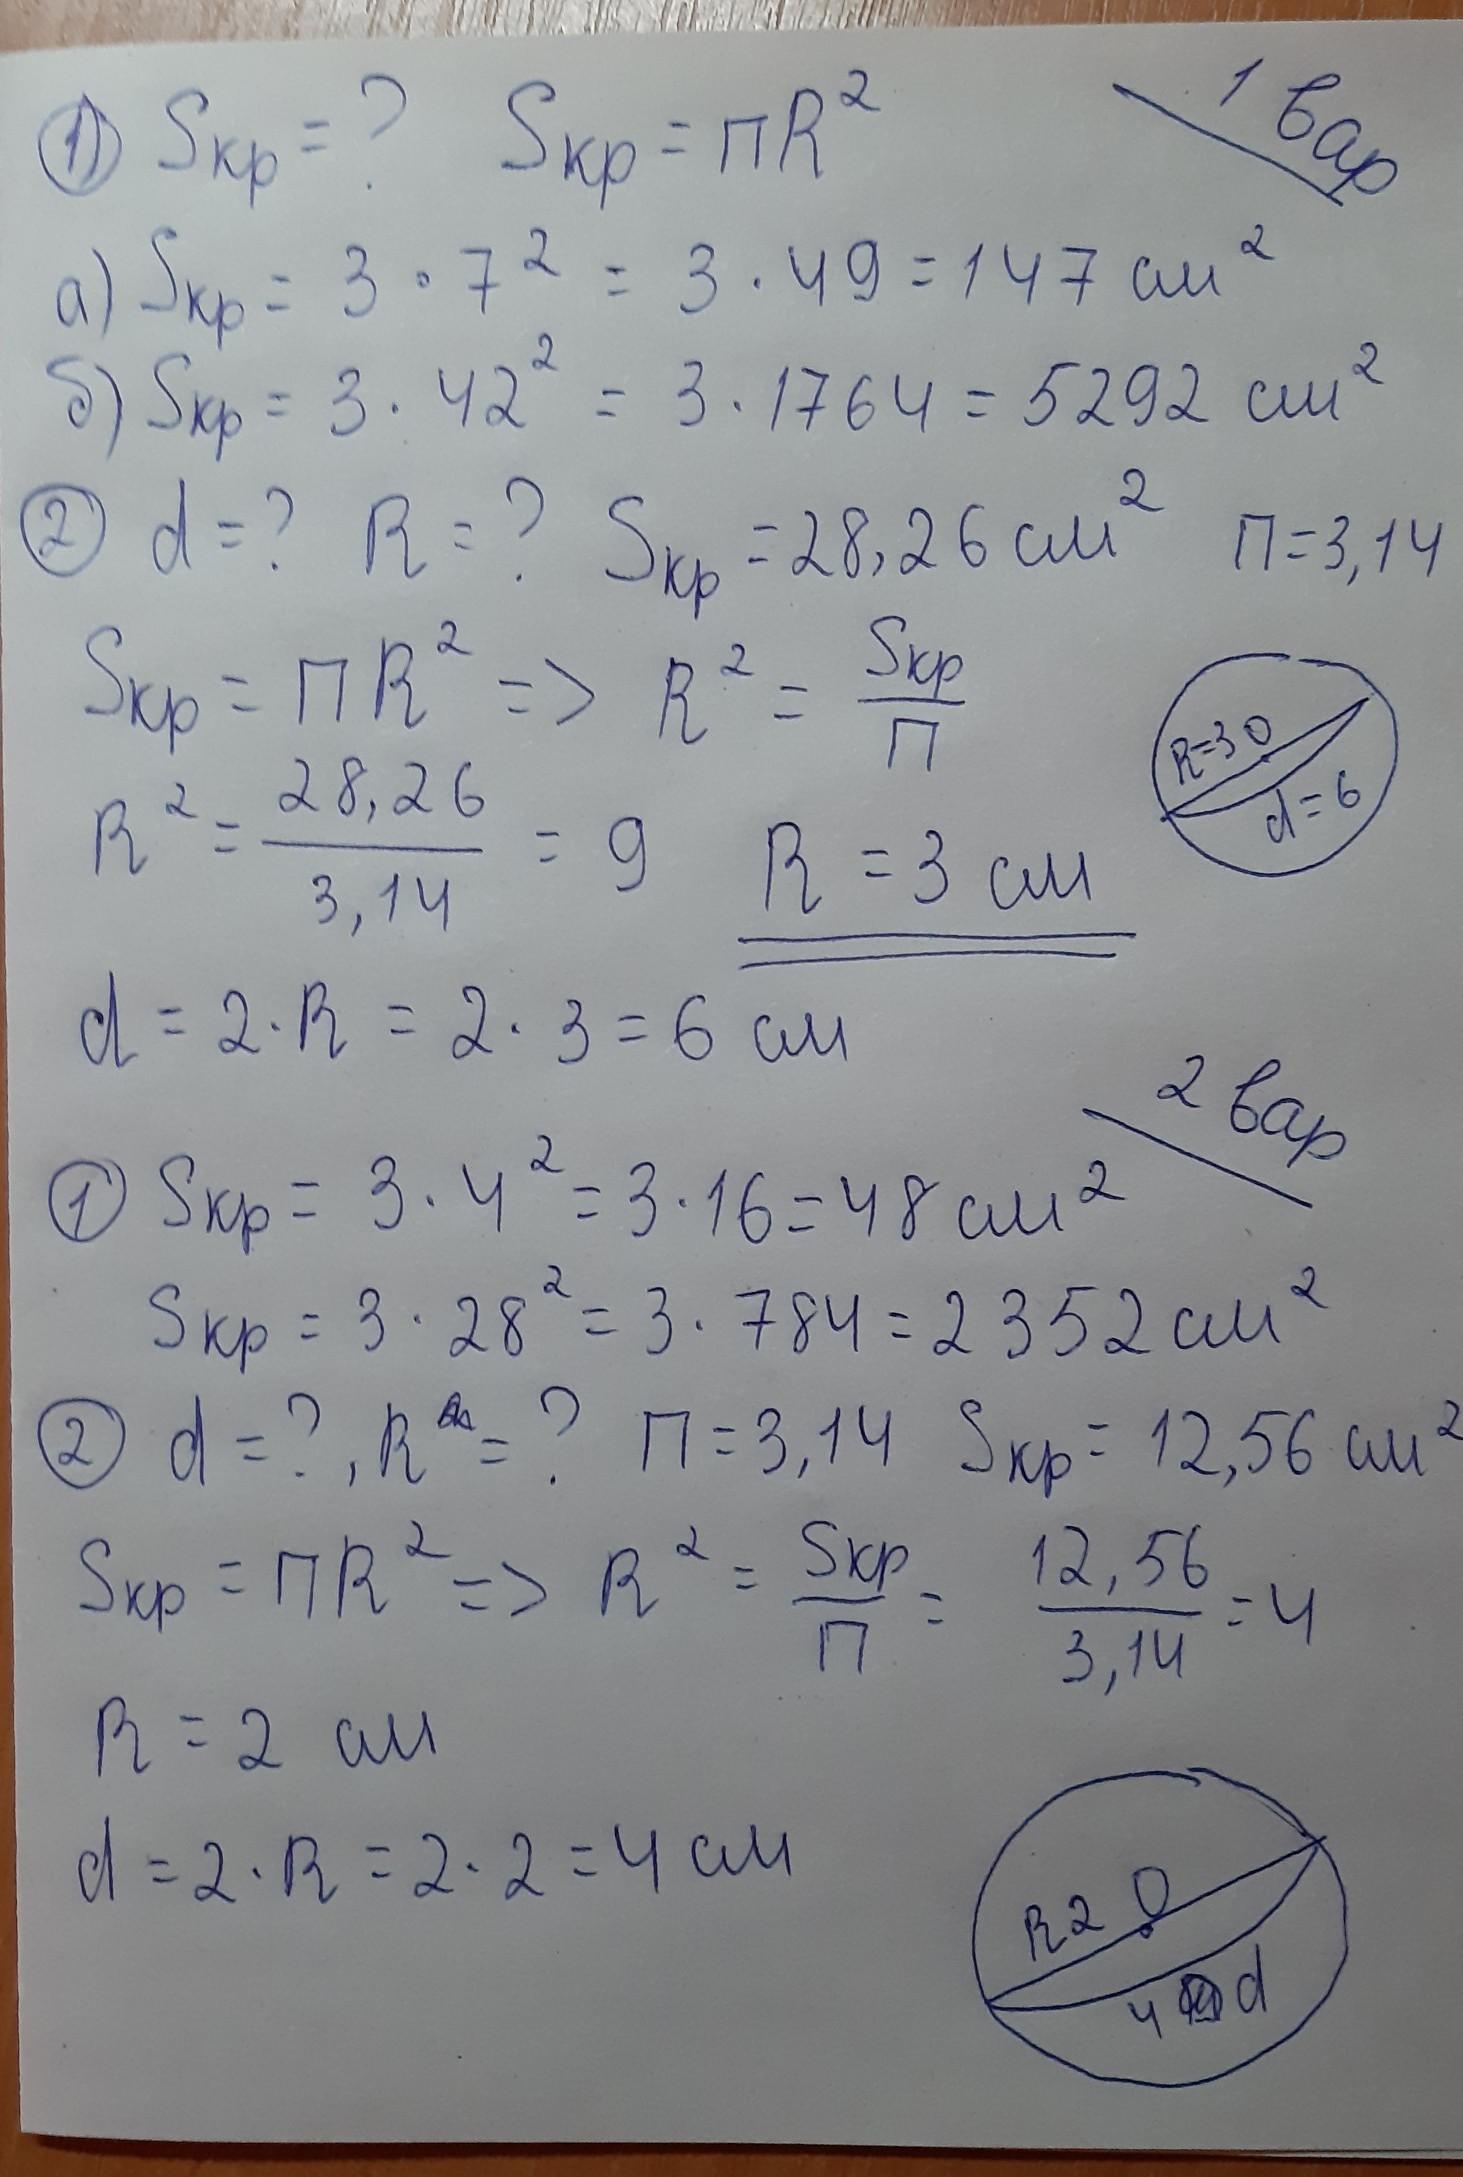 1) Sкр = ? Sкр = пR²
1 вар
а) Sкр = 3 · 7² = 3 · 49 = 147 см²
б) Sкр = 3 · 42² = 3 · 1764 = 5292 см²
2 d = ? R = ? Sкр = 28,26 см² П = 3,14
Sкр = ПR² => R² = Sкр/П
R² = 28,26/3,14 = 9 R = 3 см
R=3 O
d=6
d = 2 · R = 2 · 3 = 6 см
2 вар
1 Sкр = 3 · 4² = 3 · 16 = 48 см²
Sкр = 3 · 28² = 3 · 784 = 2352 см²
2 d = ?, R = ? П = 3,14 Sкр = 12,56 см²
Sкр = ПR² => R² = Sкр/П = 12,56/3,14 = 4
R = 2 см
d = 2 · R = 2 · 2 = 4 см
R2 O
4 d